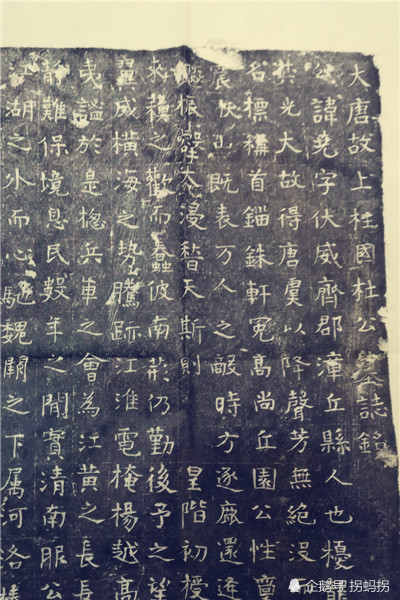 大唐故上柱國杜公墓誌銘
公諱堯字伏威齊郡漳丘縣人也擾
其光大故得唐虞以降聲芳無絕沒
名標穗首錙銖軒冕高尚丘園公性
震伏而既表万人之敵時方逐鹿還逢
振聲大浸替天斯則 皇階初授
穨之歡而蠢彼南荊仍勤後予之望
翼成橫海之勢騰跡江淮電掩楊越高
曳謚於是揔兵車之會為江黃之長長
靜難保境息民數年之閒實清南服公
湖之外而心馳魏闕之下属河洛
企鹅号 拐蚂拐